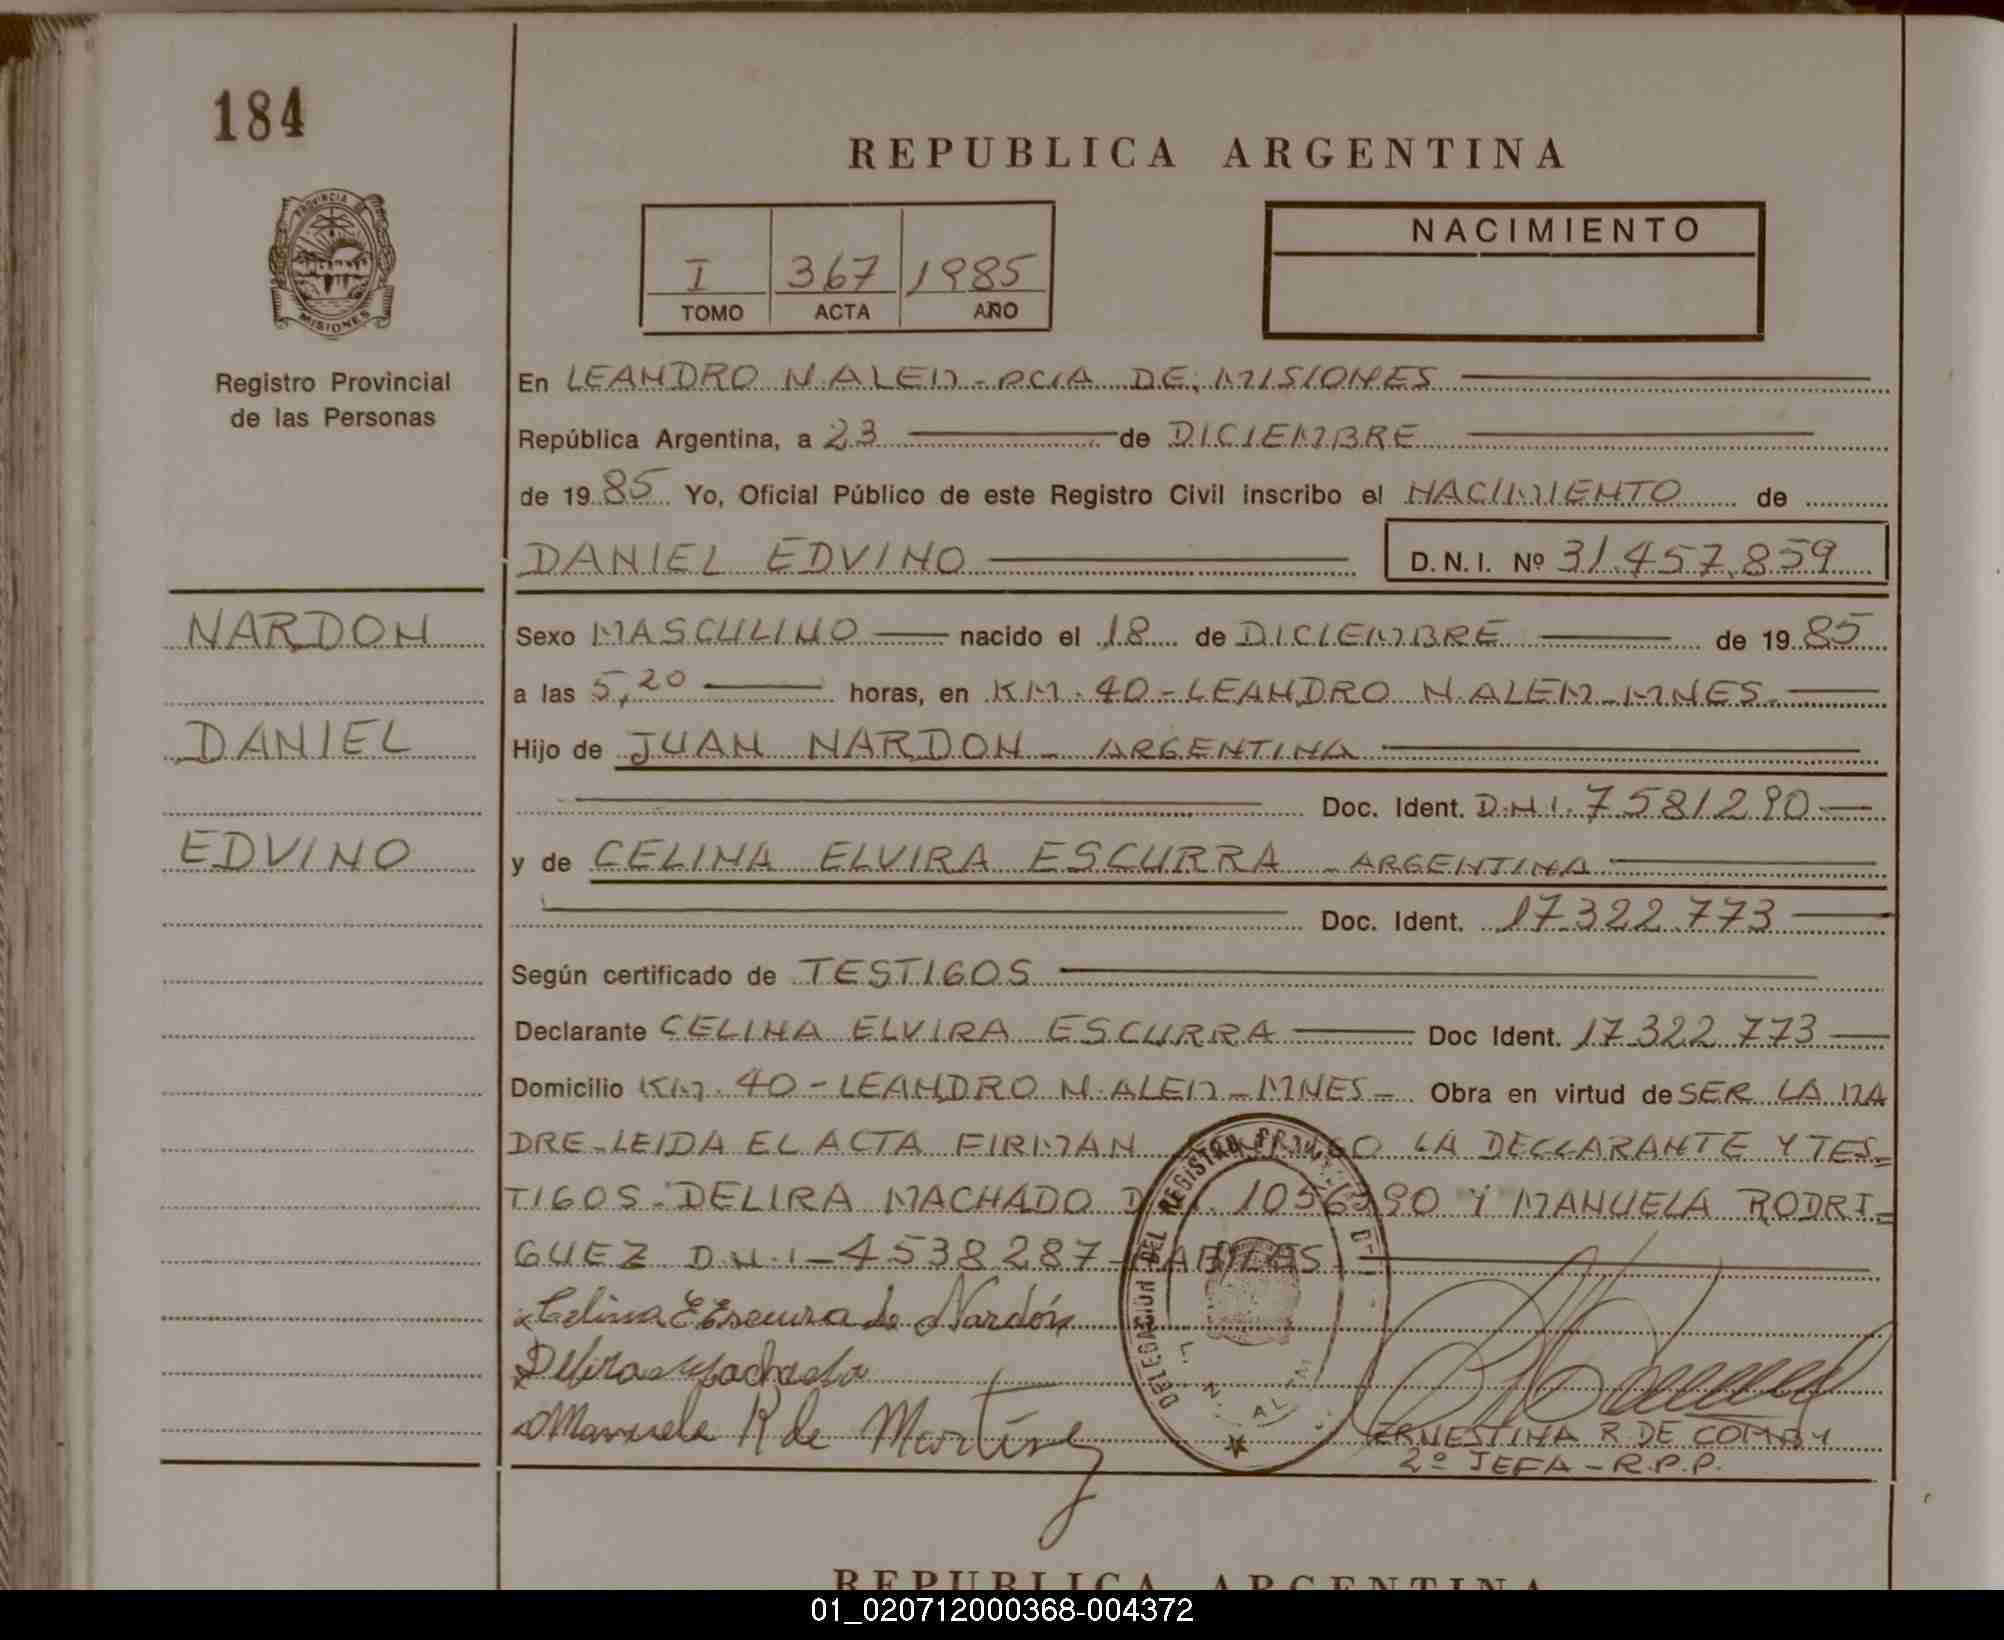 184
REPUBLICA ARGENTINA
PROVINCIA DE
MISIONES
Registro Provincial
de las Personas
I 367 1985
TOMO ACTA AÑO
NACIMIENTO
En LEANDRO N. ALEM - PCIA DE MISIONES
República Argentina, a 23 de DICIEMBRE
de 1985 Yo, Oficial Público de este Registro Civil inscribo el NACIMIENTO de
DANIEL EDVINO D.N.I. Nº 31.457.859
NARDON
DANIEL
EDVINO
Sexo MASCULINO nacido el 18 de DICIEMBRE de 1985
a las 5,20 horas, en KM. 40 - LEANDRO N. ALEM - MNES.
Hijo de JUAN NARDON - ARGENTINA
Doc. Ident. D.N.I. 7581290
y de CELINA ELVIRA ESCURRA - ARGENTINA
Doc. Ident. 17.322.773
Según certificado de TESTIGOS
Declarante CELINA ELVIRA ESCURRA Doc Ident. 17.322.773
Domicilio KM. 40 - LEANDRO N. ALEM - MNES - Obra en virtud de SER LA MA
DRE - LEIDA EL ACTA FIRMAN CONMIGO LA DECLARANTE Y TES=
TIGOS - DELIRA MACHADO 1056390 Y MANUELA RODRI=
GUEZ D.N.I - 4538287 -
Celina E Escurra de Nardón
Delira Machado
Manuela R de Martínez
DELEGACION DEL REGISTRO PROVINCIAL DE
L. N. ALEM
ERNESTINA R. DE
2º JEFA - R.P.P.
REPUBLICA ARGENTINA
01_020712000368-004372